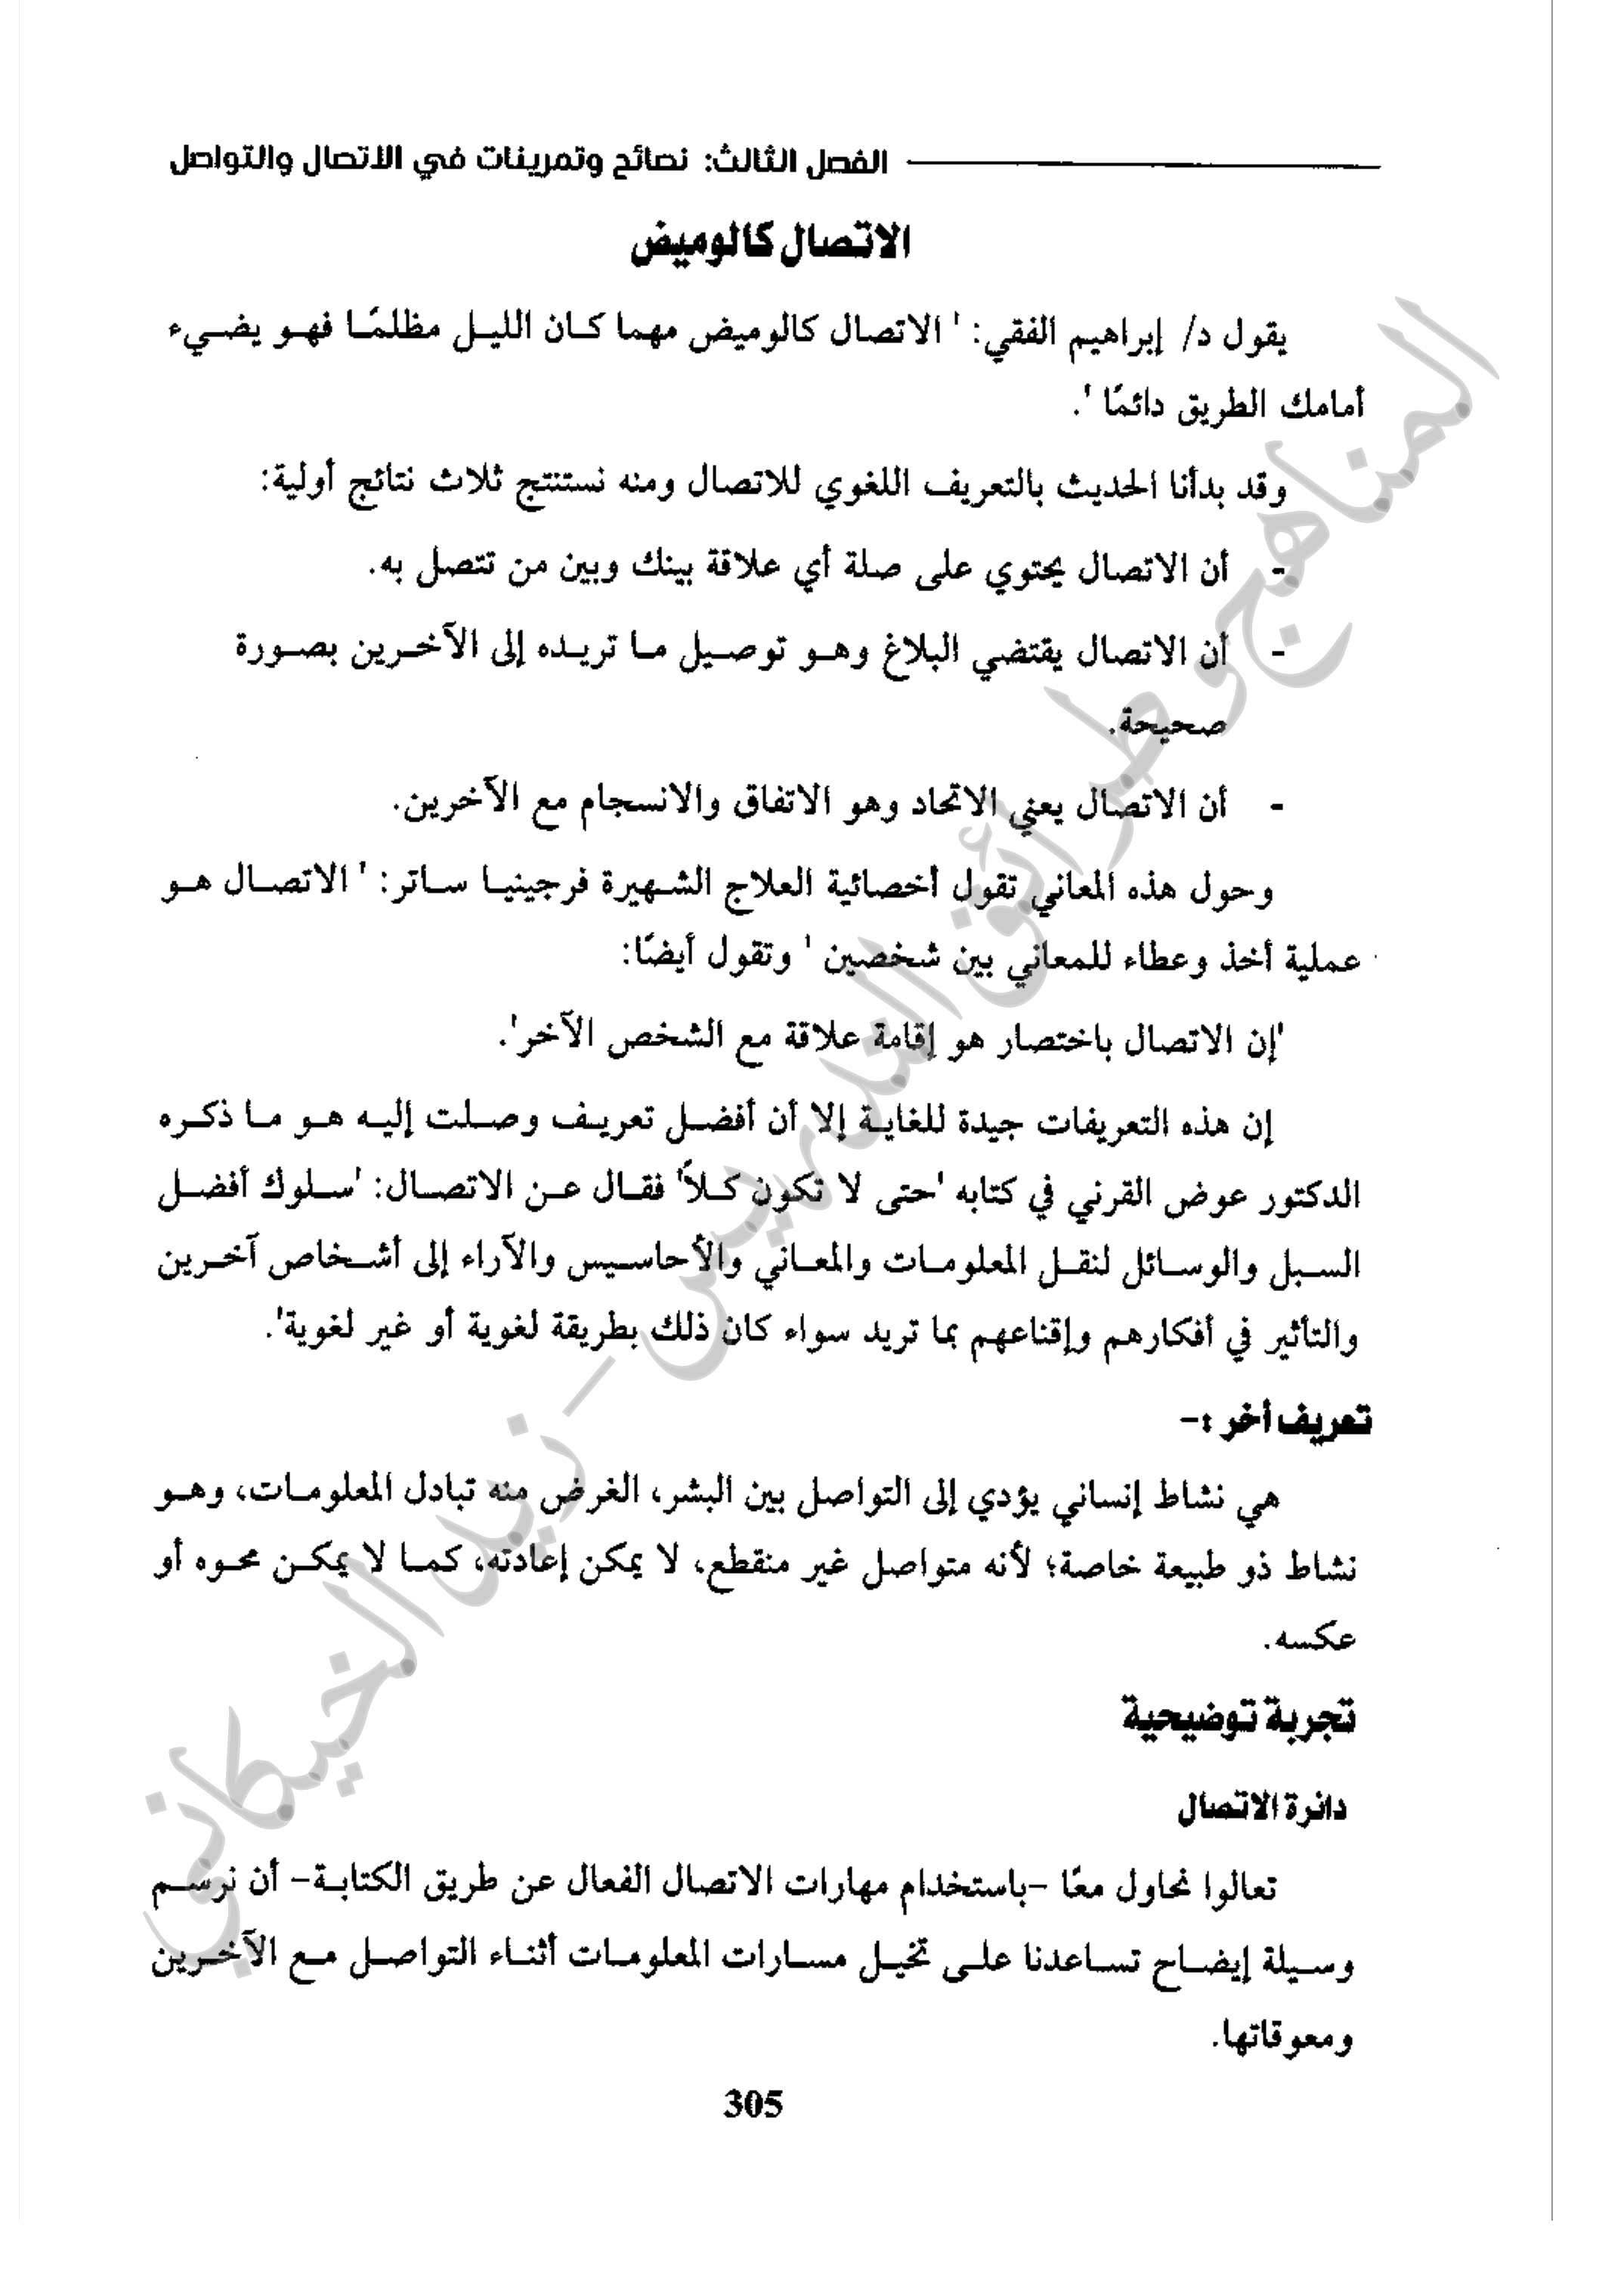 الفصل الثالث: نصائح وتمرينات في الاتصال والتواصل
الاتصال كالوميض
يقول د/ إبراهيم الفقي: ' الاتصال كالوميض مهما كان الليل مظلمًا فهو يضيء
أمامك الطريق دائمًا '.
وقد بدأنا الحديث بالتعريف اللغوي للاتصال ومنه نستنتج ثلاث نتائج أولية:
- أن الاتصال يحتوي على صلة أي علاقة بينك وبين من تتصل به.
- أن الاتصال يقتضي البلاغ وهو توصيل ما تريده إلى الآخرين بصورة
صحيحة.
- أن الاتصال يعني الاتحاد وهو الاتفاق والانسجام مع الآخرين.
وحول هذه المعاني تقول أخصائية العلاج الشهيرة فرجينيا ساتر: ' الاتصال هو
عملية أخذ وعطاء للمعاني بين شخصين ' وتقول أيضًا:
'إن الاتصال باختصار هو إقامة علاقة مع الشخص الآخر'.
إن هذه التعريفات جيدة للغاية إلا أن أفضل تعريف وصلت إليه هو ما ذكره
الدكتور عوض القرني في كتابه 'حتى لا تكون كلاً' فقال عن الاتصال: 'سلوك أفضل
السبل والوسائل لنقل المعلومات والمعاني والأحاسيس والآراء إلى أشخاص آخرين
والتأثير في أفكارهم وإقناعهم بما تريد سواء كان ذلك بطريقة لغوية أو غير لغوية'.
تعريف أخر :-
هي نشاط إنساني يؤدي إلى التواصل بين البشر، الغرض منه تبادل المعلومات، وهو
نشاط ذو طبيعة خاصة؛ لأنه متواصل غير منقطع، لا يمكن إعادته، كما لا يمكن محوه أو
عكسه.
تجربة توضيحية
دائرة الاتصال
تعالوا نحاول معًا -باستخدام مهارات الاتصال الفعال عن طريق الكتابة- أن نرسم
وسيلة إيضاح تساعدنا على تخيل مسارات المعلومات أثناء التواصل مع الآخرين
ومعوقاتها.
305
المناهج وطرائق التدريس - زيد الخيكاني